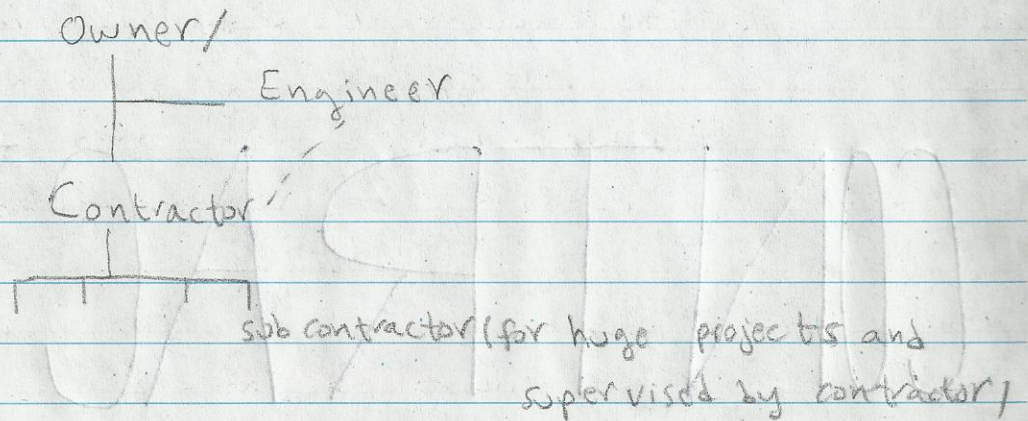 Owner/
Engineer
Contractor
subcontractor (for huge projects and
supervised by contractor/